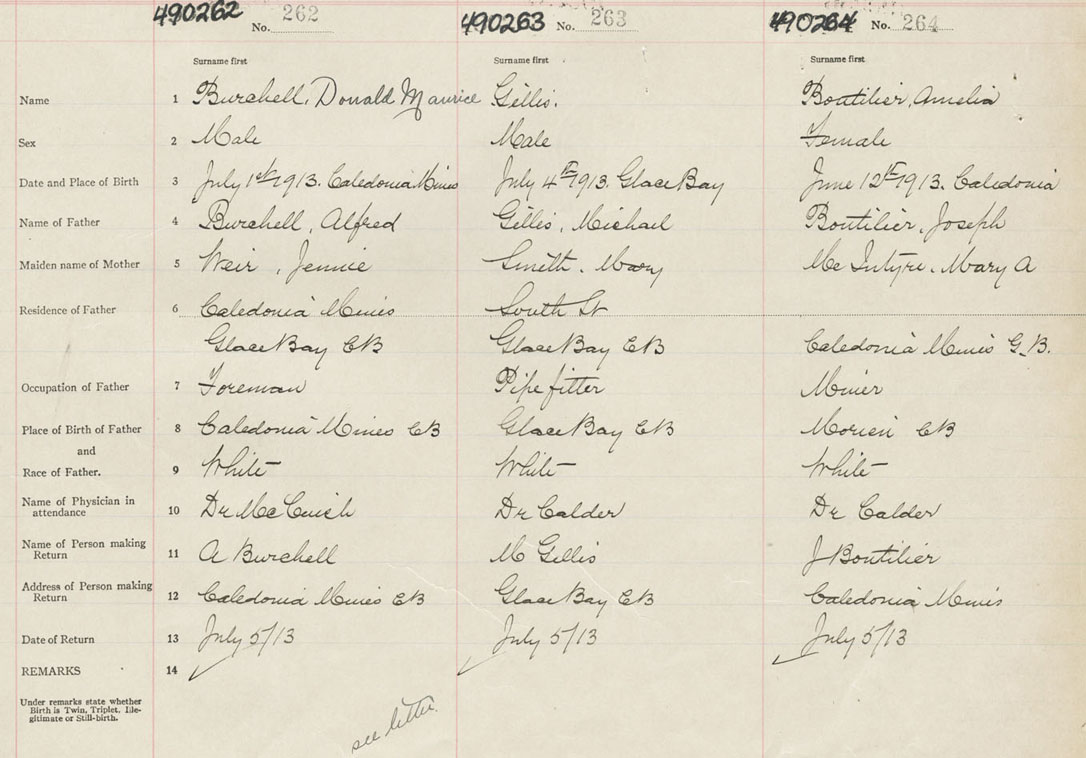 490262 No. 262 490263 No. 263 490264 No. 264
Surname first Surname first Surname first
Name 1 Burchell, Donald Maurice Gillis. Boutilier, Amelia
Sex 2 Male Male Female
Date and Place of Birth 3 July 1st 1913. Caledonia Mines July 4th 1913. Glace Bay June 12th 1913. Caledonia
Name of Father 4 Burchell, Alfred Gillis, Michael Boutilier, Joseph
Maiden name of Mother 5 Weir, Jennie Smith. Mary McIntyre. Mary A
Residence of Father 6 Caledonia Mines South St
Glace Bay CB Glace Bay CB Caledonia Mines G.B.
Occupation of Father 7 Foreman Pipe fitter Miner
Place of Birth of Father 8 Caledonia Mines CB Glace Bay CB Morien CB
and
Race of Father. 9 White White White
Name of Physician in
attendance 10 Dr McCuish Dr Calder Dr Calder
Name of Person making
Return 11 A Burchell M Gillis J Boutilier
Address of Person making
Return 12 Caledonia Mines CB Glace Bay CB Caledonia Mines
Date of Return 13 July 5/13 July 5/13 July 5/13
REMARKS 14
Under remarks state whether
Birth is Twin, Triplet, Ille-
gitimate or Still-birth.
see letter.